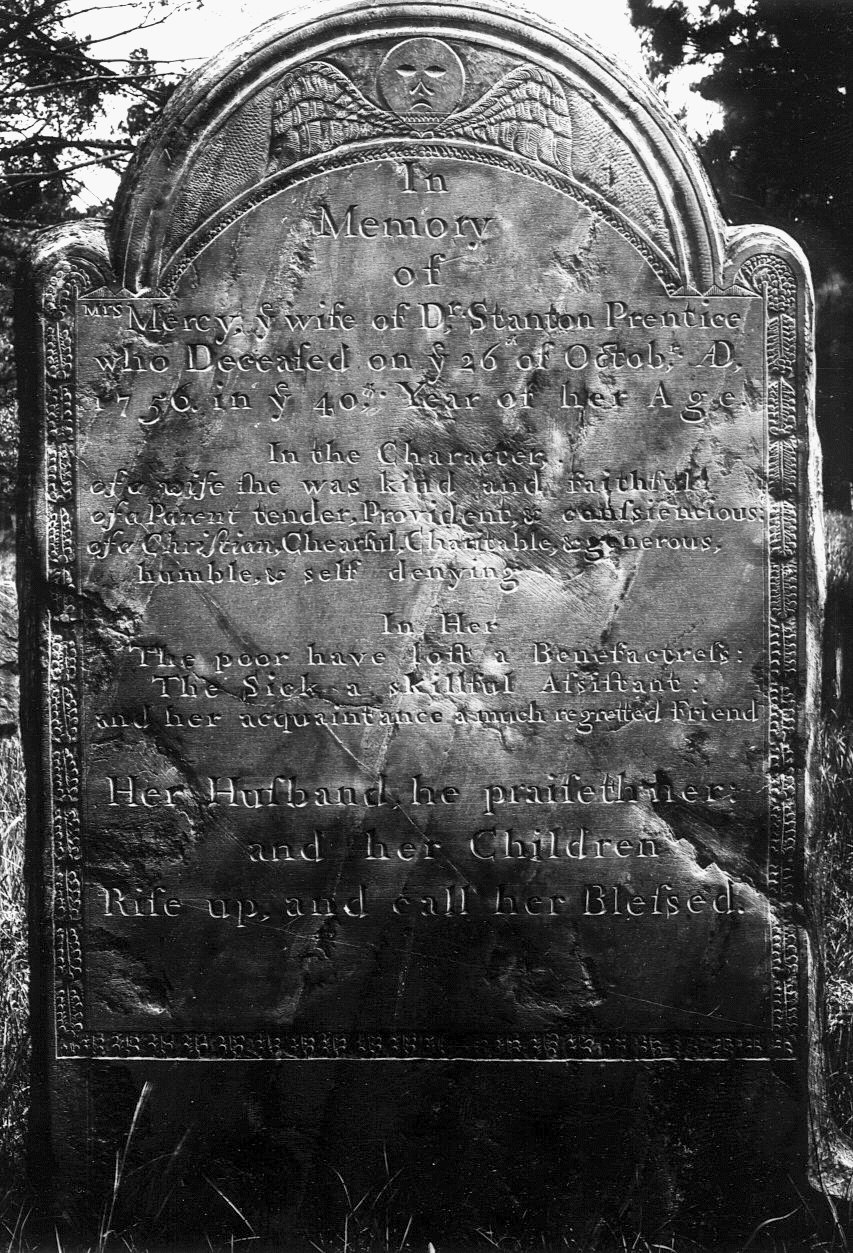 In
Memory
of
Mrs Mercy, yͤ wife of Dr. Stanton Prentice
who Deceaſed on yͤ 26th of Octobr. AD,
1756. in yͤ 40th. Year of her Age.
In the Character
of a wife ſhe was kind and faithfull
of a Parent tender, Provident, & conſsiencious:
of a Chriſtian, Chearful, Charitable, & generous,
humble, & self denying
In Her
The poor have loſt a Benefactreſs:
The Sick a skillful Aſsiſtant:
and her acquaintance a much regretted Friend
Her Huſband, he praiſeth her:
and her Children
Riſe up, and call her Bleſsed.